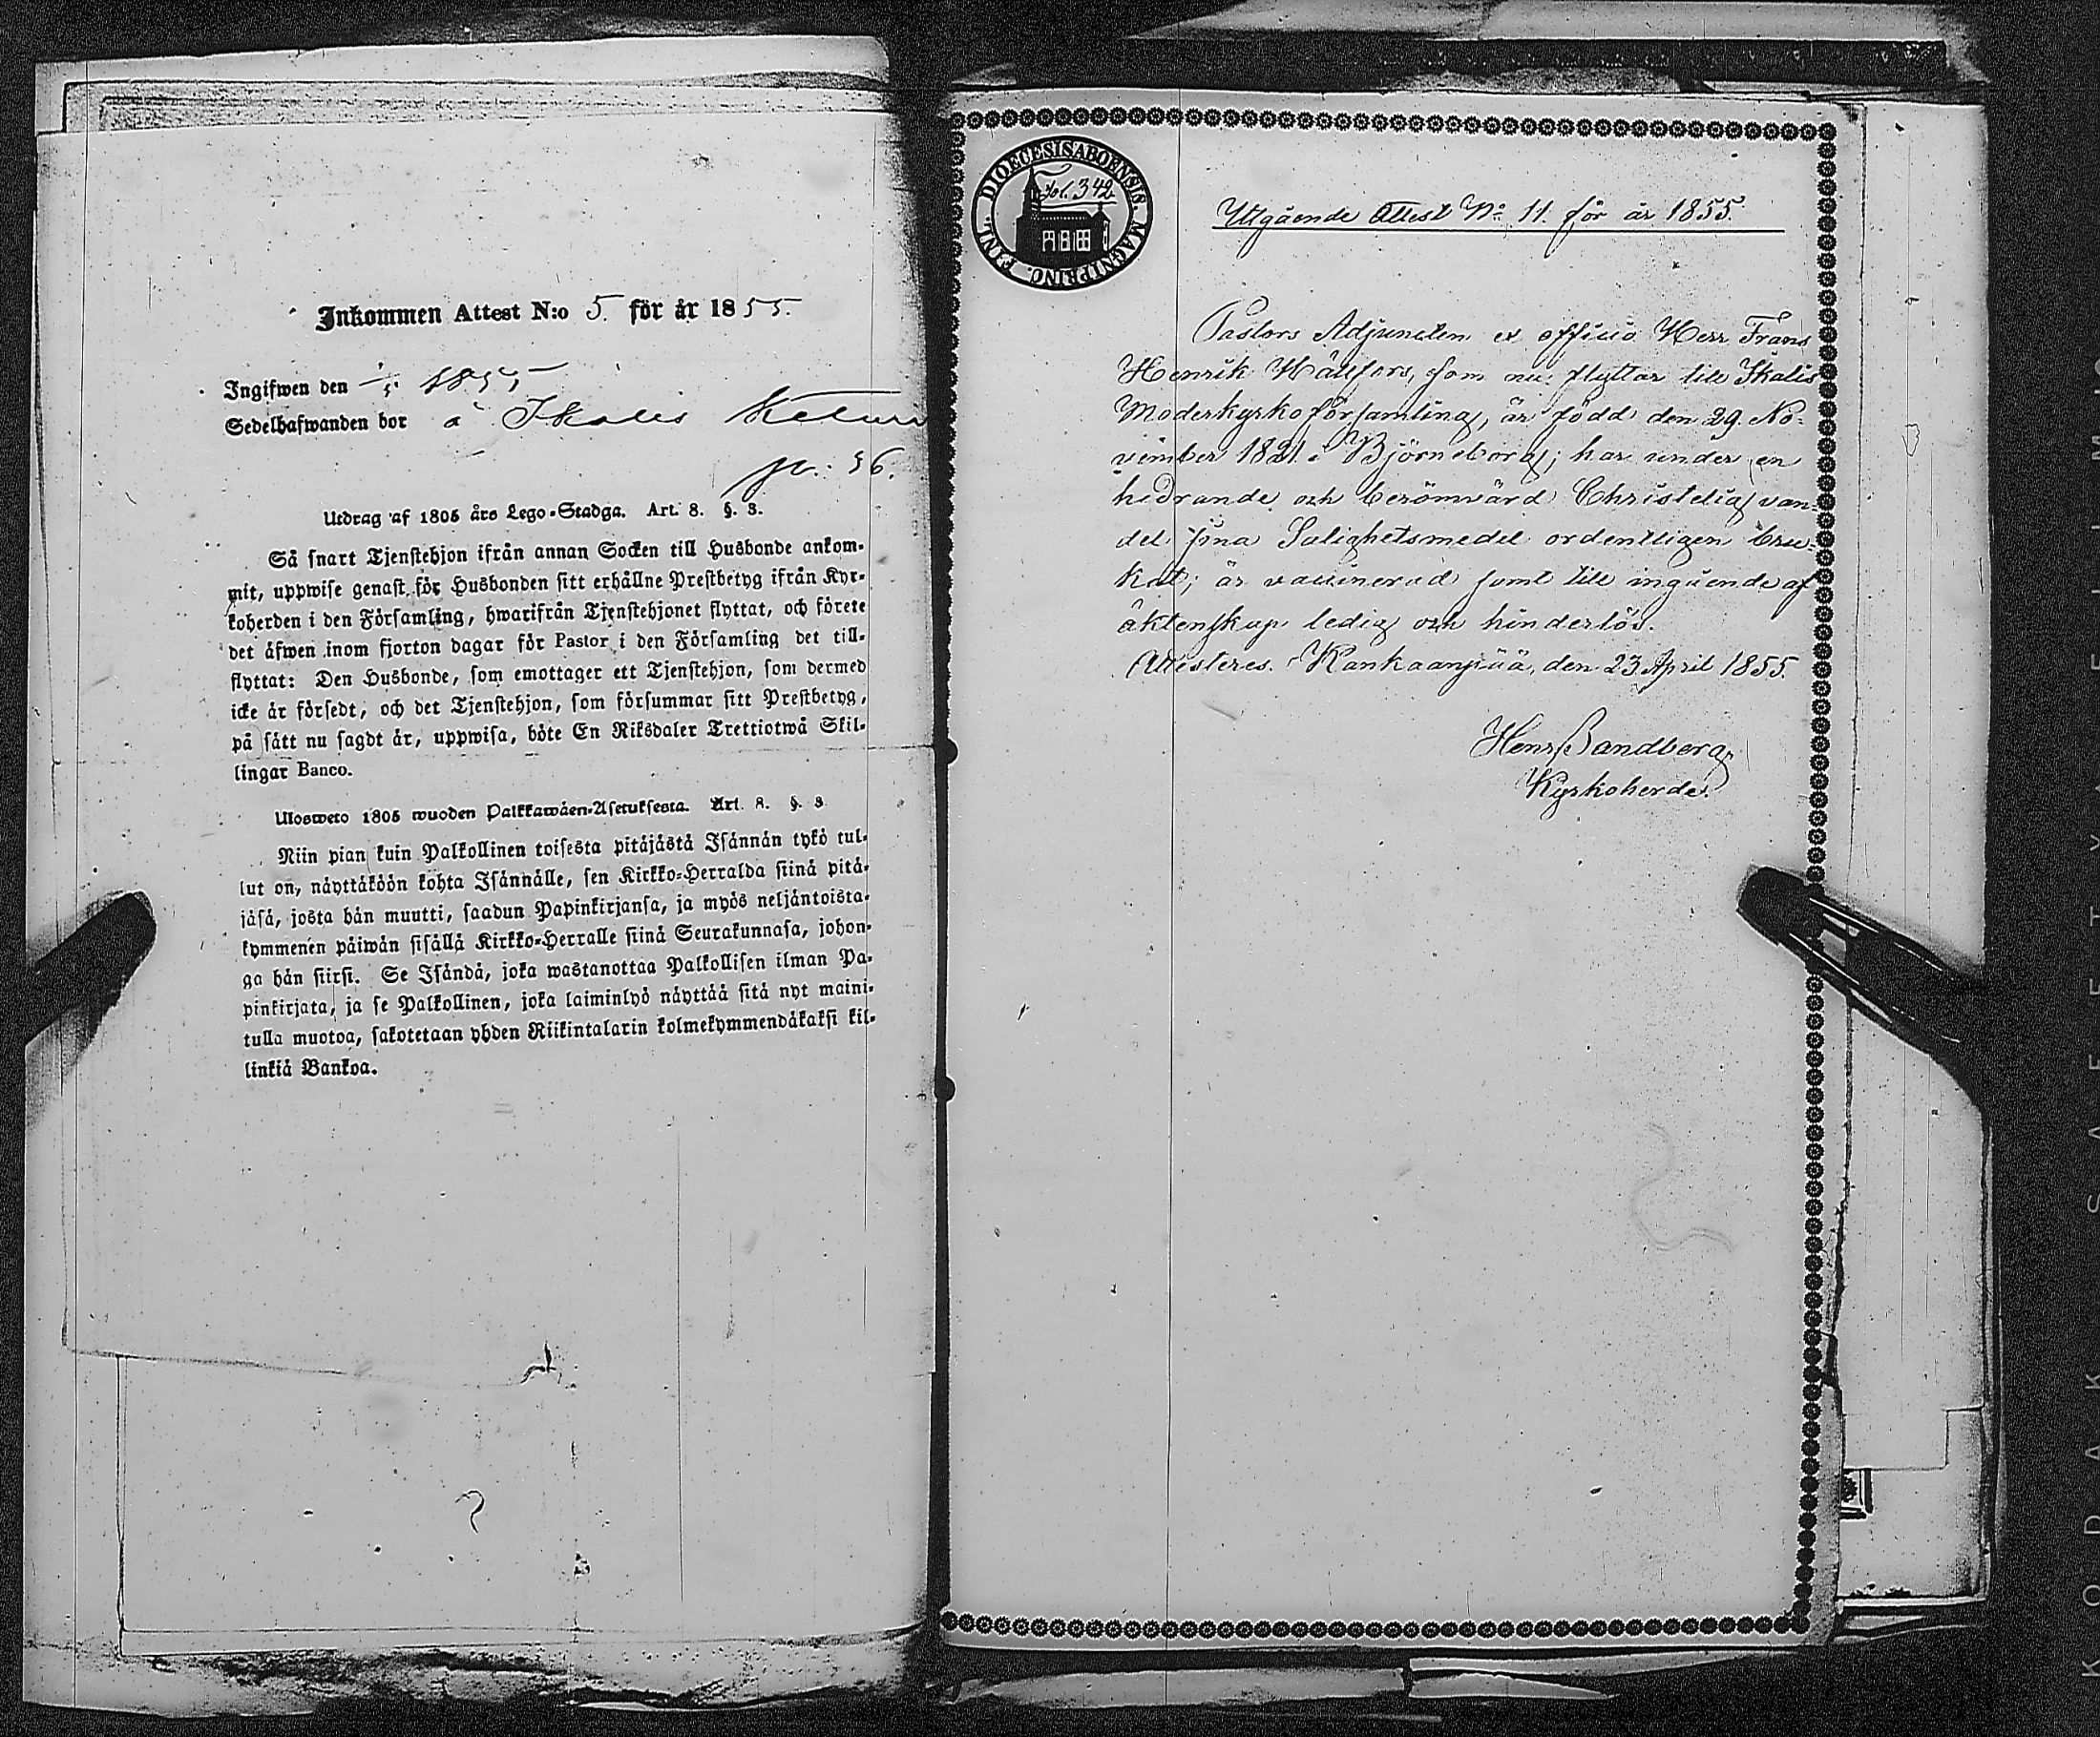 Inkommen Attest N:o 5. för år 1855.
Ingifwen den 1/5. 1855
Sedelhafwanden bor å Ikalis
p. : 36.
Utdrag af 1805 års Lego-Stadga. Art. 8. §. 3.
Så snart Tjenstehjon ifrån annan Socken till Husbonde ankom-
mit, uppwise genast för Husbonden sitt erhållne Prestbetyg ifrån Kyr-
koherden i den Församling, hwarifrån Tjenstehjonet flyttat, och förete
det äfwen inom fjorton dagar för Pastor i den Församling det till-
flyttat: Den Husbonde, som emottager ett Tjenstehjon, som dermed
icke är försedt, och det Tjenstehjon, som försummar sitt Prestbetyg,
på sätt nu sagdt är, uppwisa, böte En Riksdaler Trettiotwå Skil-
lingar Banco.
Ulosweto 1805 wuoden Palkkawäen-Asetuksesta. Art. 8. §. 3
Niin pian kuin Palkollinen toisesta pitäjästä Isännän tykö tul-
lut on, näyttäköön kohta Isännälle, sen Kirkko-Herralda siinä pitä-
jäsä, josta hän muutti, saadun Papinkirjansa, ja myös neljäntoista-
kymmenen päiwän sisällä Kirkko-Herralle siinä Seurakunnasa, johon-
ga hän siirsi. Se Isändä, joka wastanottaa Palkollisen ilman Pa-
pinkirjata, ja se Palkollinen, joka laiminlyö näyttää sitä nyt maini-
tulla muotoa, sakotetaan yhden Riikintalarin kolmekymmendäkaksi kil-
linkiä Bankoa.
DIOECESIS ABOENSIS. MAGNI PRINC. FINL.
fol. 342.
Utgående Attest No 11. för år 1855.
Pastors Adjuncten ex officio Herr Frans
Henrik Hällfors, som nu flyttar till Ikalis
Moderkyrkoförsamling, är född den 29. No-
vember 1821. i Björneborg; har under en
hedrande och berömvärd Christelig van-
del sina Salighetsmedel ordentligen bru-
kat; är vaccinerad samt till ingående af
äktenskap ledig och hinderlös.
Attesteres. Kankaanpää, den 23. April 1855.
Henr Sandberg
Kyrkoherde.
KODAK SAFETY FILM